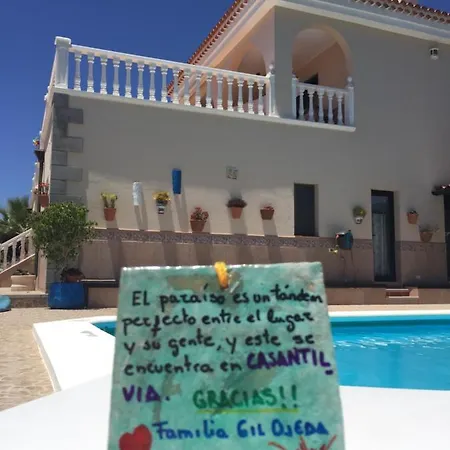 El paraíso es un tándem
perfecto entre el lugar
y su gente, y este se
encuentra en CASANTIL
VIA. GRACIAS!!
Familia Gil Ojeda